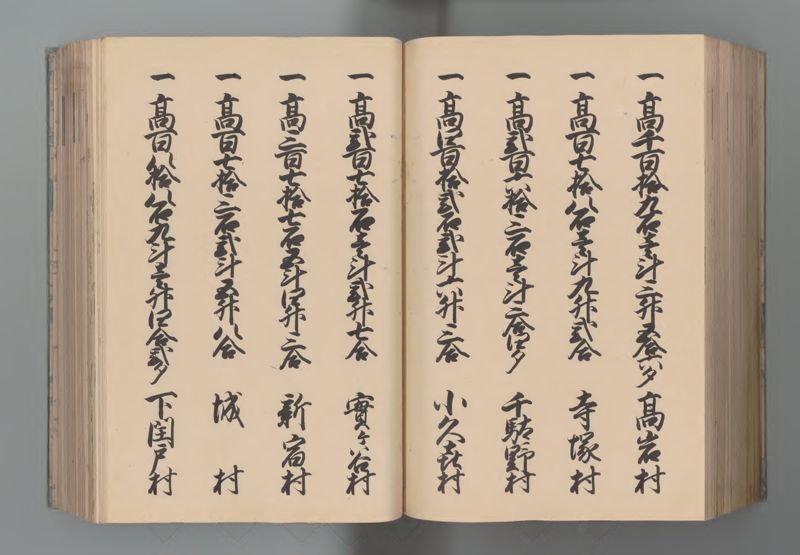 一高千百拾九石壱斗三升五合八夕 高岩村
一高百七拾八石壱斗九升弐合 寺塚村
一高弐百六拾三石壱斗三合四夕 千駄野村
一高四百拾弐石弐斗六升三合 小久喜村
一高弐百七拾石壱斗弐升七合 實ケ谷村
一高三百七拾七石五斗四升三合 新宿村
一高百七拾三石弐斗五升八合 城村
一高百八拾八石九斗壱升四合弐夕 下閏戸村